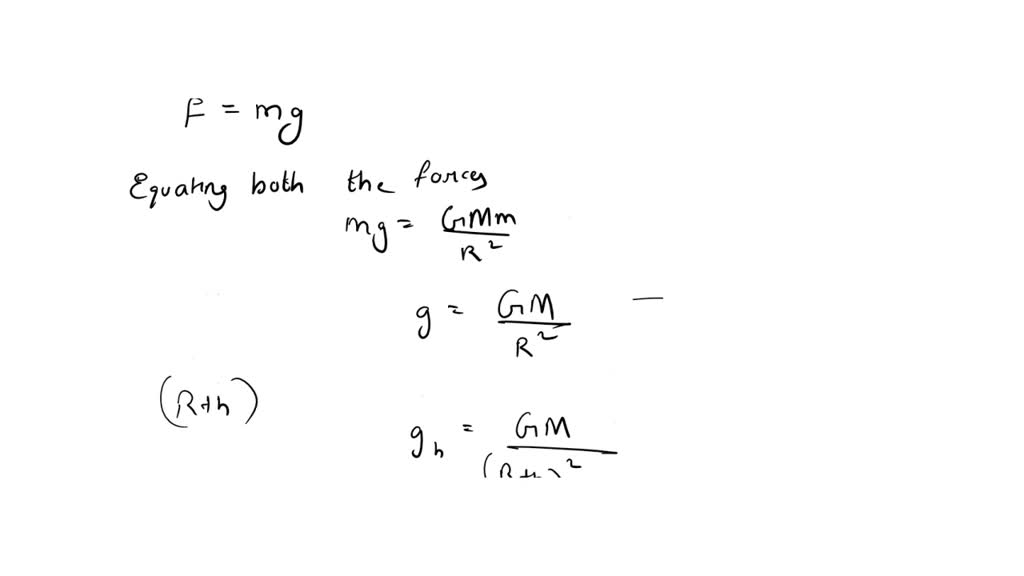 F = mg
Equating both the forces
mg = GMm / R²
g = GM / R² —
(R+h)
g_h = GM / (R+h)²